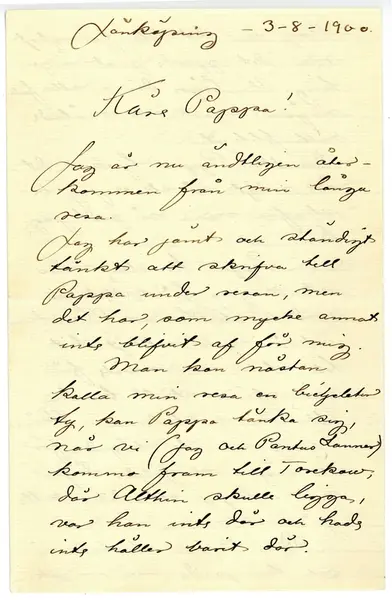 Jönköping – 3-8-1900.
Käre Pappa!
Jag är nu ändtligen åter-
kommen från min långa
resa.
Jag har jämt och ständigt
tänkt att skrifva till
Pappa under resan, men
det har, som mycke annat
inte blifvit af för mig.
Man kan nästan
kalla min resa en
ty, kan Pappa tänka sig,
när vi (jag och Pontus)
kommo fram till Torekow,
där Althin skulle ligga,
var han inte där och hade
inte häller varit där.